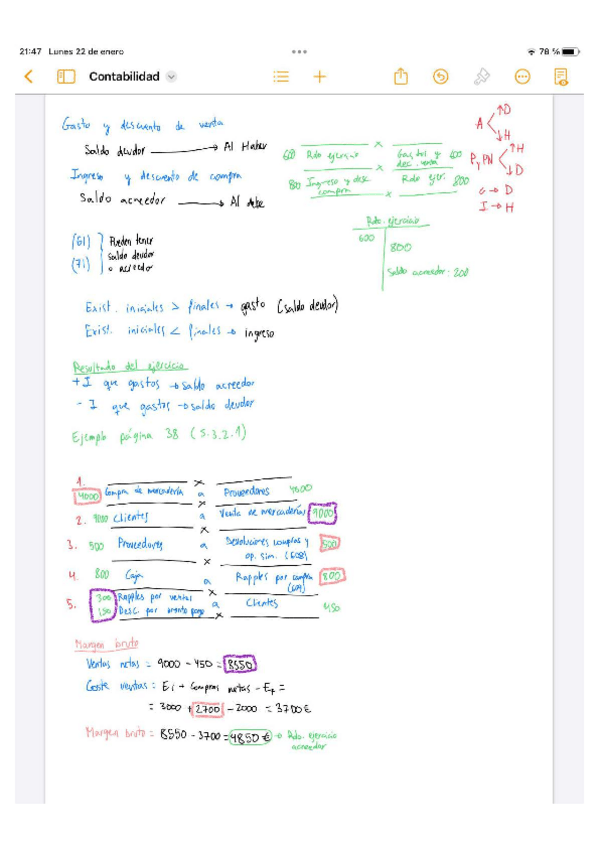 21:47 Lunes 22 de enero
78 %
Contabilidad
Gasto y descuento de venta
Saldo deudor → Al Haber
Ingreso y descuento de compra
Saldo acreedor → Al debe
600 Rdo ejercicio x Gas, dev y dec. venta 600
800 Ingreso y desc. compra x Rdo ejer. 800
A ↑D ↓H
P y PN ↑H ↓D
G → D
I → H
Rdo. ejercicio
600
800
Saldo acreedor: 200
(61)
(71)
Pueden tener
saldo deudor
o acreedor
Exist. iniciales > finales → gasto (saldo deudor)
Exist. iniciales < finales → ingreso
Resultado del ejercicio
+ I que gastos → saldo acreedor
- I que gastos → saldo deudor
Ejemplo página 38 (5.3.2.1)
1. 4000 Compra de mercadería a Proveedores 4000
2. 9000 Clientes a Venta de mercaderías 9000
3. 500 Proveedores a Devoluciones compras y op. sim. (608) 500
4. 800 Caja a Rapples por compra (609) 800
5. 300 Rapples por ventas
150 Desc. por pronto pago a Clientes 450
Margen bruto
Ventas netas = 9000 - 450 = 8550
Coste ventas = Ei + compras netas - Ef =
= 3000 + 2700 - 2000 = 3700 €
Margen bruto = 8550 - 3700 = 4850 € → Rdo. ejercicio
acreedor